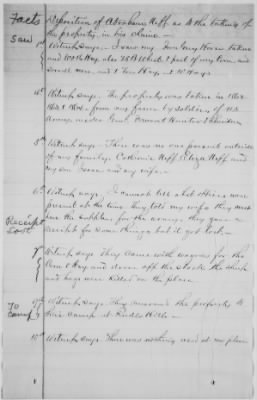 Facts
Deposition of Abraham Neff as to the taking of
the property, in his claim —
Saw
1st Witness Says, I saw my Iron Grey Horse taken
and 100 lb Hay also 75 B Wheat & part of my corn and
small one, and 1 Hay
4th Witness says The property was taken in 1862
1863 & 1864 from my farm by soldiers of U.S.
Army under Genl. Fremont Hunter & Sheridan
5th Witness says There was no one present outside
of my family. Catherine Neff Eliza Neff and
my son Isaac and my wife —
6th Witness says I cannot tell what officers were
present at the time they told my wife they must
have the supplies for the army, they gave a
receipt for some things but it got lost —
Receipt
Lost
7th Witness says They came with wagons for the
Corn & Hay and drove off the stock the sheep
and hogs were killed on the place
To
camp
9th Witness says They removed the property to
their camp at Rude's Hill —
10th Witness says There was nothing used at my place